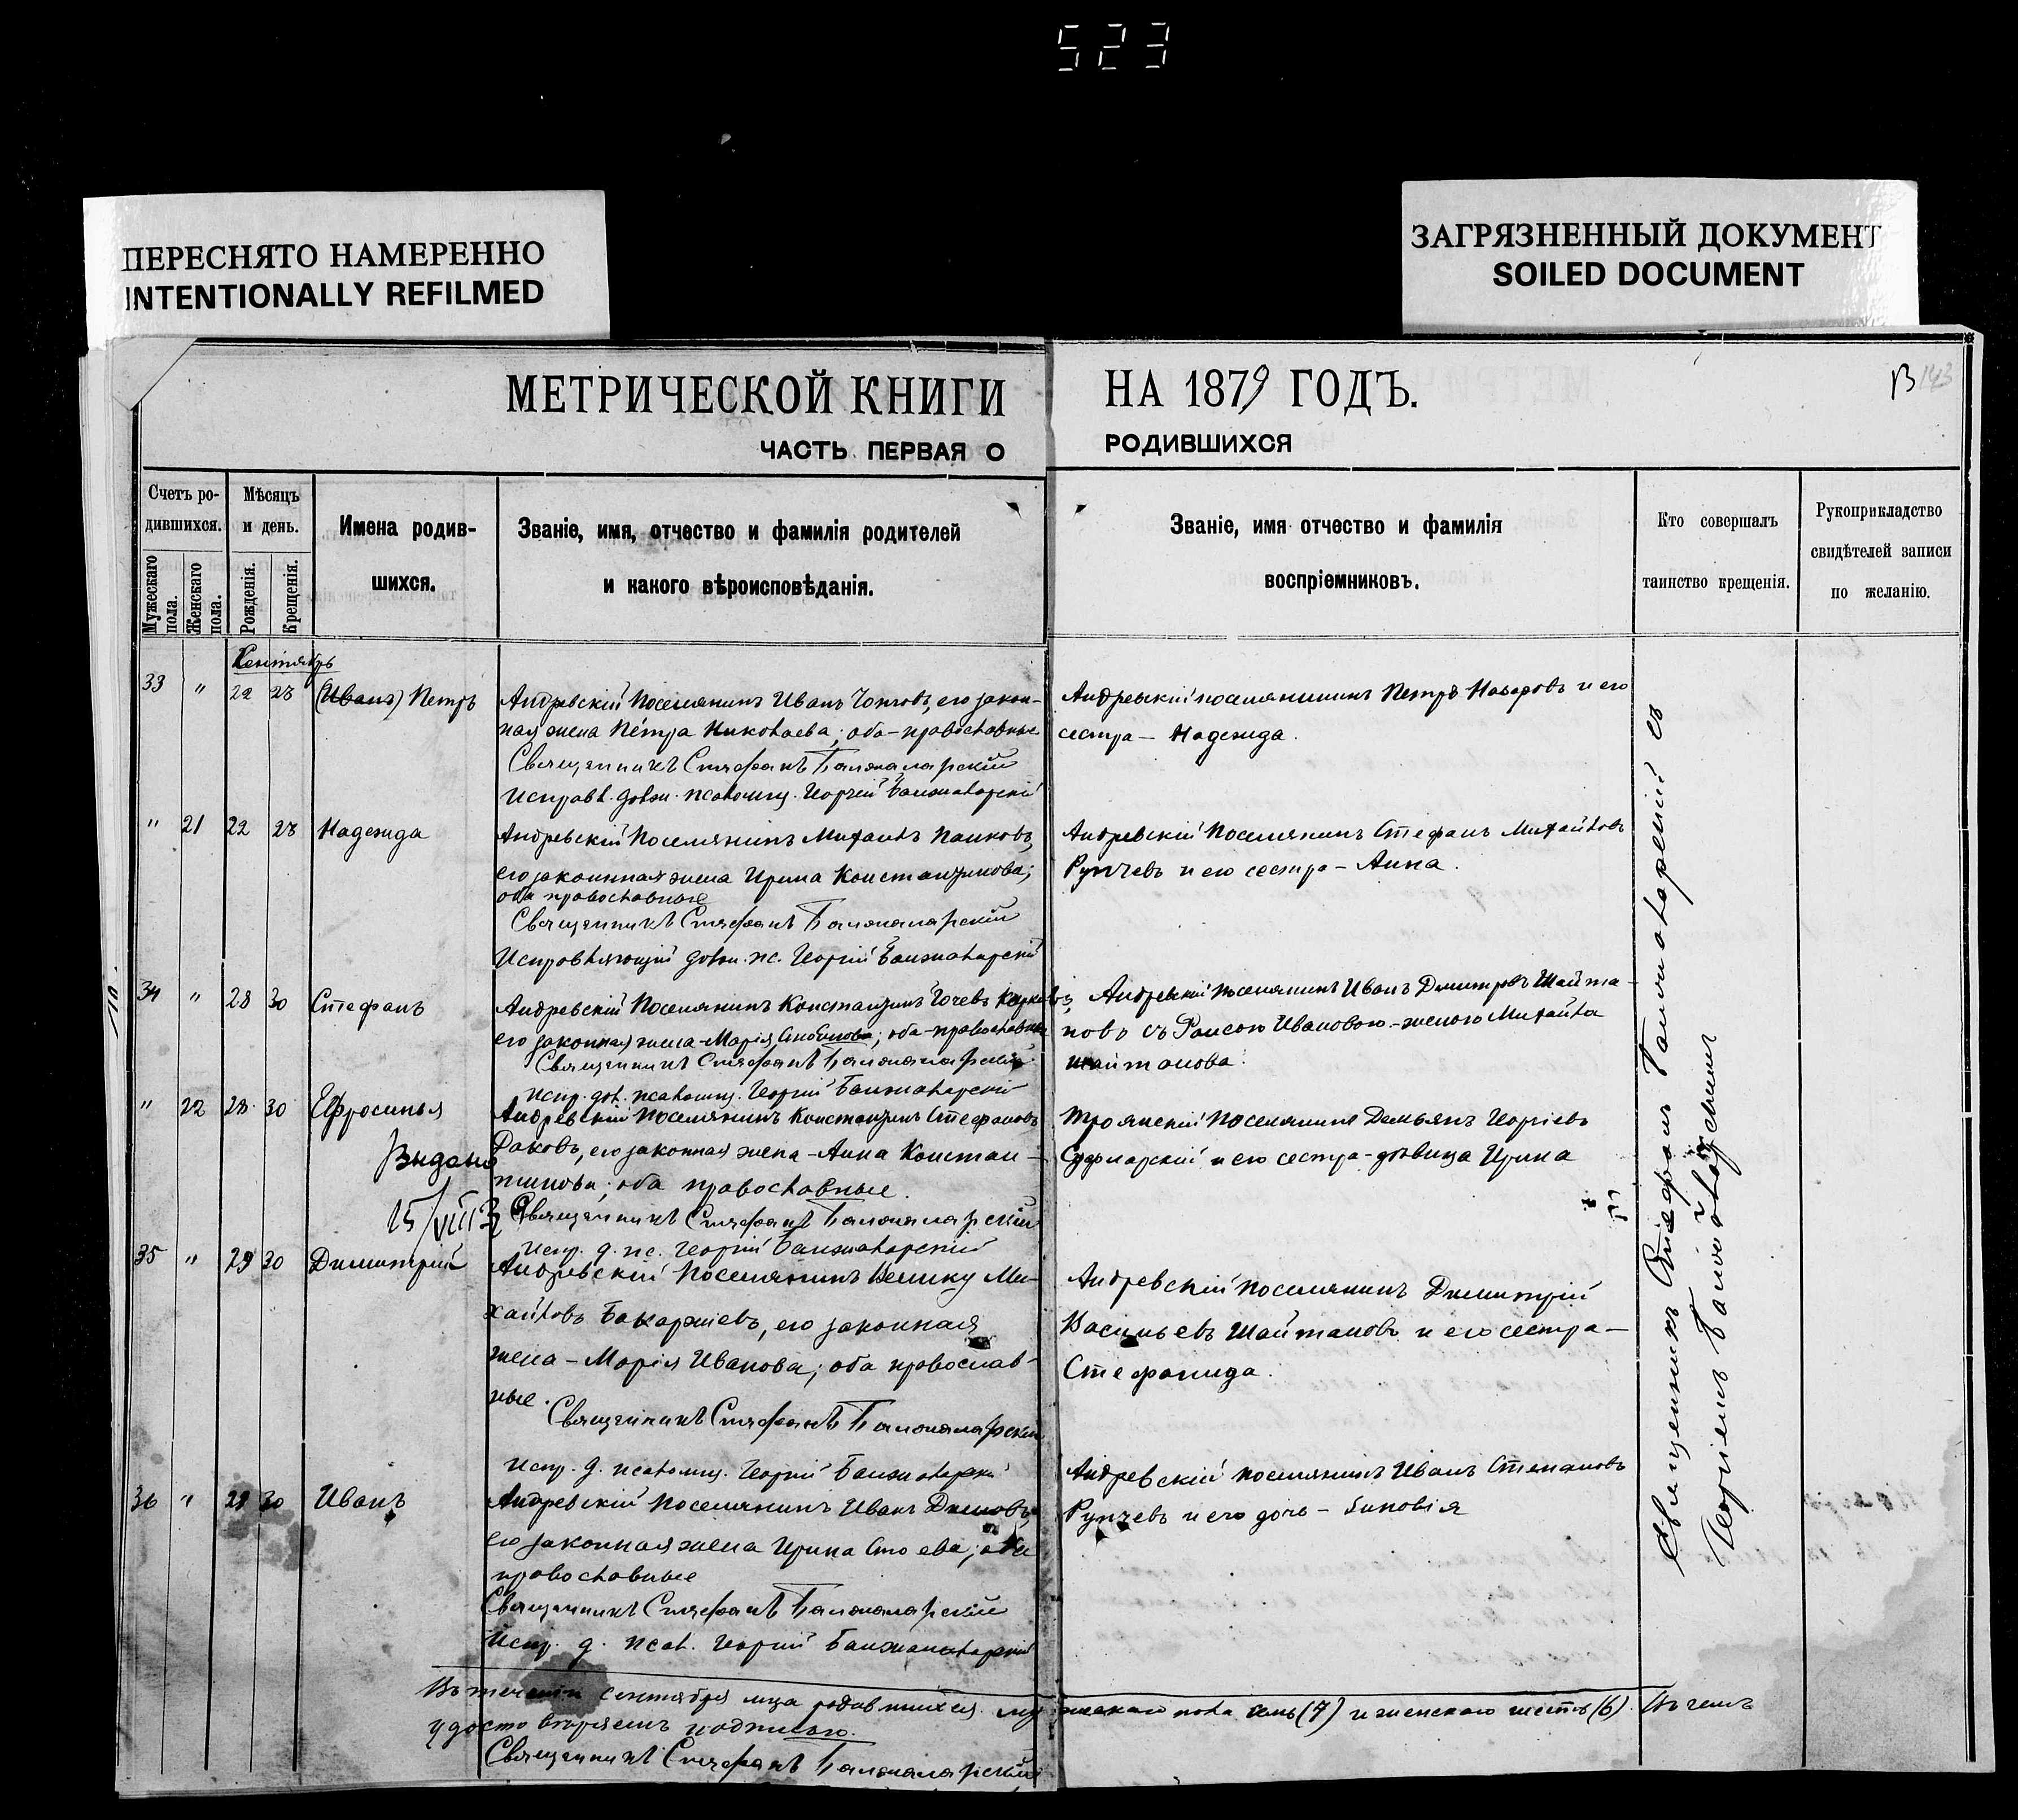 523
ПЕРЕСНЯТО НАМЕРЕННО
INTENTIONALLY REFILMED
ЗАГРЯЗНЕННЫЙ ДОКУМЕНТ
SOILED DOCUMENT
МЕТРИЧЕСКОЙ КНИГИ НА 1879 ГОДЪ.
143
ЧАСТЬ ПЕРВАЯ О РОДИВШИХСЯ
Счетъ ро-
дившихся.
Мужескаго пола.
Женскаго пола.
Мѣсяцъ
и день.
Рожденія.
Крещенія.
Имена родив-
шихся.
Званіе, имя, отчество и фамилія родителей
и какого вѣроисповѣданія.
Званіе, имя отчество и фамилія
воспріемниковъ.
Кто совершалъ
таинство крещенія.
Рукоприкладство
свидѣтелей записи
по желанію.
Сентябрь
33 " 22 28 (Иванъ) Петръ
Андревскій Поселянинъ Иванъ его закон-
ная жена Петра Николаева; оба-православные
Священникъ Стефанъ Балжаларскій
Исправл. долж. псаломщ. Георгій Балжаларскій
Андревскій поселянинъ Петръ Назаровъ и его
сестра – Надежида.
" 21 22 28 Надежида
Андревскій Поселянинъ Михаилъ Панковъ,
его законная жена Ирина Константинова;
оба православные
Священникъ Стефанъ Балжаларскій
Исправляющій долж. пс. Георгій Балжаларскій
Андревскій Поселянинъ Стефанъ Михайловъ
Рупчевъ и его сестра – Анна.
34 " 28 30 Стефанъ
Андревскій Поселянинъ Константинъ Гочевъ
его законная жена – Марія оба-православные
Священникъ Стефанъ Балжаларскій
испр. дол. псаломщ. Георгій Балжаларскій
Андревскій поселянинъ Иванъ Димитровъ Шайта-
новъ съ Раисою Ивановою-женою Михайла
Шайтанова.
" 22 28 30 Ефросинья
Выдано
15/VIII
Андревскій Поселянинъ Константинъ Стефановъ
Раковъ, его законная жена – Анна Констан-
тинова; оба православные.
Священникъ Стефанъ Балжаларскій
испр. д. пс. Георгій Балжаларскій
Троянскій Поселянинъ Демьянъ Георгіевъ
и его сестра-дѣвица Ирина
35 " 29 30 Димитрій
Андревскій Поселянинъ Велику Ми-
хайловъ его законная
жена – Марія Иванова; оба православ-
ные.
Священникъ Стефанъ Балжаларскій
испр. д. псаломщ. Георгій Балжаларскій
Андревскій поселянинъ Димитрій
Васильевъ Шайтановъ и его сестра –
Стефанида.
36 " 29 30 Иванъ
Андревскій Поселянинъ Иванъ Димовъ,
его законная жена Ирина Стоева; оба
православные
Священникъ Стефанъ Балжаларскій
испр. д. псал. Георгій Балжаларскій
Андревскій поселянинъ Иванъ Степановъ
Рупчевъ и его дочь – Зиновія
Священникъ Стефанъ Балжаларскій съ
Георгіемъ Балжаларскимъ
Въ теченіи сентября мца родившихся мужескаго пола семь (7) и женскаго шесть (6). Въ чемъ
удостовѣряемъ подписью.
Священникъ Стефанъ Балжаларскій